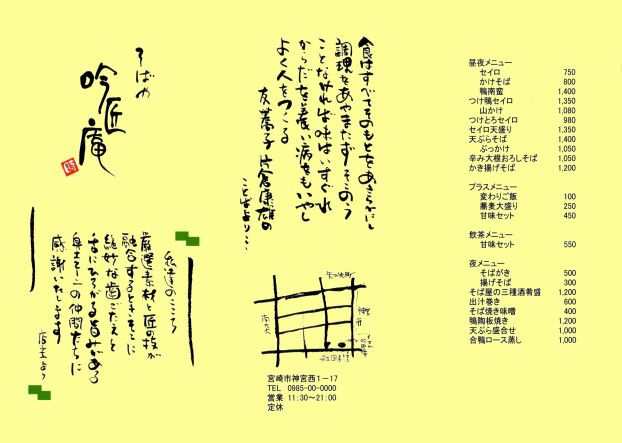 そばや
吟匠庵
私達のこころ
厳選素材と匠の技が
融合するときそこに
絶妙な歯ごたえと
舌にひろがる旨みがある
感謝いたします
店主より
食はすべてそのもとをあきらかにし
調理をあやまたずそこのう
ことなければ味はいすぐれ
からだを養い病をもいやし
よく人をつくる
友蕎子 片倉康雄の
ことばより
宮崎市神宮西1-17
TEL 0985-00-0000
営業 11:30~21:00
定休
昼夜メニュー
セイロ 750
かけそば 800
鴨南蛮 1,400
つけ鴨セイロ 1,350
山かけ 1,080
つけとろセイロ 980
セイロ天盛り 1,350
天ぷらそば 1,400
ぶっかけ 1,050
辛み大根おろしそば 1,050
かき揚げそば 1,200
プラスメニュー
変わりご飯 100
蕎麦大盛り 250
甘味セット 450
飲茶メニュー
甘味セット 550
夜メニュー
そばがき 500
揚げそば 300
そば屋の三種酒肴盛 1,200
出汁巻き 600
そば焼き味噌 400
鴨陶板焼き 1,200
天ぷら盛合せ 1,000
合鴨ロース蒸し 1,000